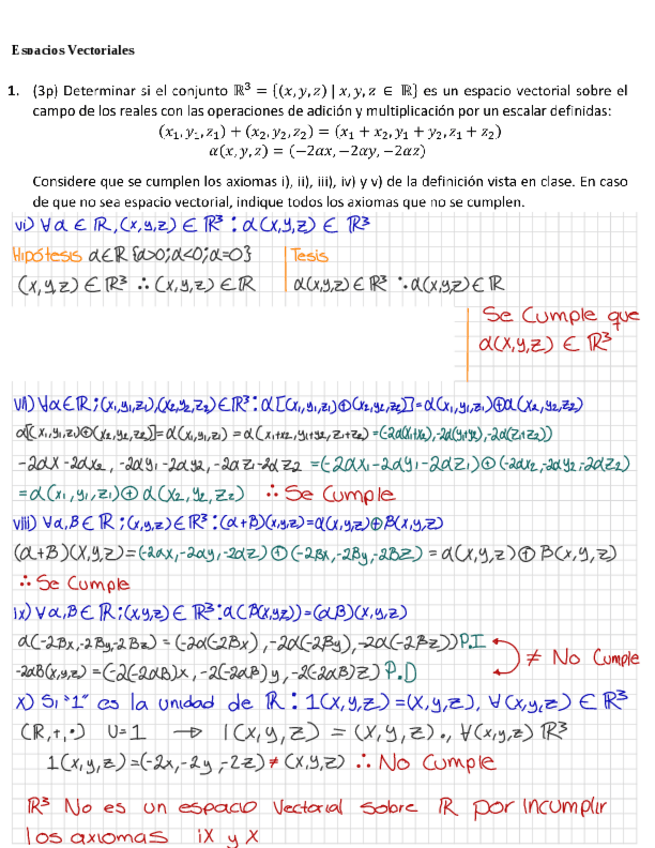 Espacios Vectoriales
1. (3p) Determinar si el conjunto ℝ³ = {(x, y, z) | x, y, z ∈ ℝ} es un espacio vectorial sobre el
campo de los reales con las operaciones de adición y multiplicación por un escalar definidas:
(x₁, y₁, z₁) + (x₂, y₂, z₂) = (x₁ + x₂, y₁ + y₂, z₁ + z₂)
α(x, y, z) = (−2αx, −2αy, −2αz)
Considere que se cumplen los axiomas i), ii), iii), iv) y v) de la definición vista en clase. En caso
de que no sea espacio vectorial, indique todos los axiomas que no se cumplen.
vi) ∀α ∈ ℝ, (x,y,z) ∈ ℝ³ : α(x,y,z) ∈ ℝ³
Hipótesis α∈ℝ {α>0; α<0; α=0} Tesis
(x,y,z) ∈ ℝ³ ∴ (x,y,z) ∈ ℝ α(x,y,z) ∈ ℝ³ ∴ α(x,y,z) ∈ ℝ
Se Cumple que
α(x,y,z) ∈ ℝ³
vii) ∀α∈ℝ; (x₁,y₁,z₁),(x₂,y₂,z₂) ∈ ℝ³ : α[(x₁,y₁,z₁)⊕(x₂,y₂,z₂)] = α(x₁,y₁,z₁)⊕α(x₂,y₂,z₂)
α[(x₁,y₁,z₁)⊕(x₂,y₂,z₂)] = α(x₁,y₁,z₁) = α(x₁+x₂, y₁+y₂, z₁+z₂) = (-2α(x₁+x₂), -2α(y₁+y₂), -2α(z₁+z₂))
-2αx -2αx₂, -2αy₁ -2αy₂, -2αz₁ -2αz₂ = (-2αx₁ -2αy₁ -2αz₁) ⊕ (-2αx₂, -2αy₂, -2αz₂)
= α(x₁,y₁,z₁) ⊕ α(x₂,y₂,z₂) ∴ Se Cumple
viii) ∀α,β ∈ ℝ; (x,y,z) ∈ ℝ³ : (α+β)(x,y,z) = α(x,y,z) ⊕ β(x,y,z)
(α+β)(x,y,z) = (-2αx, -2αy, -2αz) ⊕ (-2βx, -2βy, -2βz) = α(x,y,z) ⊕ β(x,y,z)
∴ Se Cumple
ix) ∀α,β ∈ ℝ; (x,y,z) ∈ ℝ³ : α(β(x,y,z)) = (αβ)(x,y,z)
α(-2βx, -2βy, -2βz) = (-2α(-2βx), -2α(-2βy), -2α(-2βz)) P.I
-2αβ(x,y,z) = (-2(-2αβ)x, -2(-2αβ)y, -2(-2αβ)z) P.D ≠ No Cumple
x) Si "1" es la unidad de ℝ : 1(x,y,z) = (x,y,z), ∀(x,y,z) ∈ ℝ³
(ℝ,+,·) U=1 → 1(x,y,z) = (x,y,z)., ∀(x,y,z) ℝ³
1(x,y,z) = (-2x, -2y, -2z) ≠ (x,y,z) ∴ No Cumple
ℝ³ No es un espacio Vectorial sobre ℝ por incumplir
los axiomas ix y x